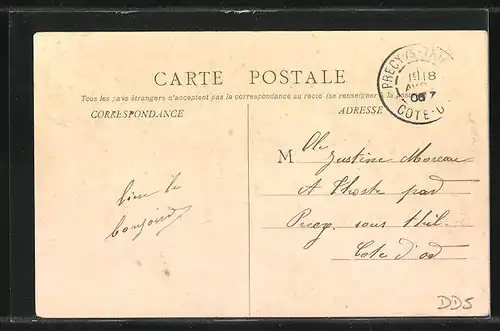 CARTE POSTALE
Tous les pays étrangers n'acceptent pas la correspondance au recto (se renseigner à la poste)
CORRESPONDANCE
ADRESSE
PRECY-SS-THIL
18
06
COTE-D
M lle Justine Moreau
A Thoste par
Precy sous Thil
Cote d'or
bien le
bonjour
DDS